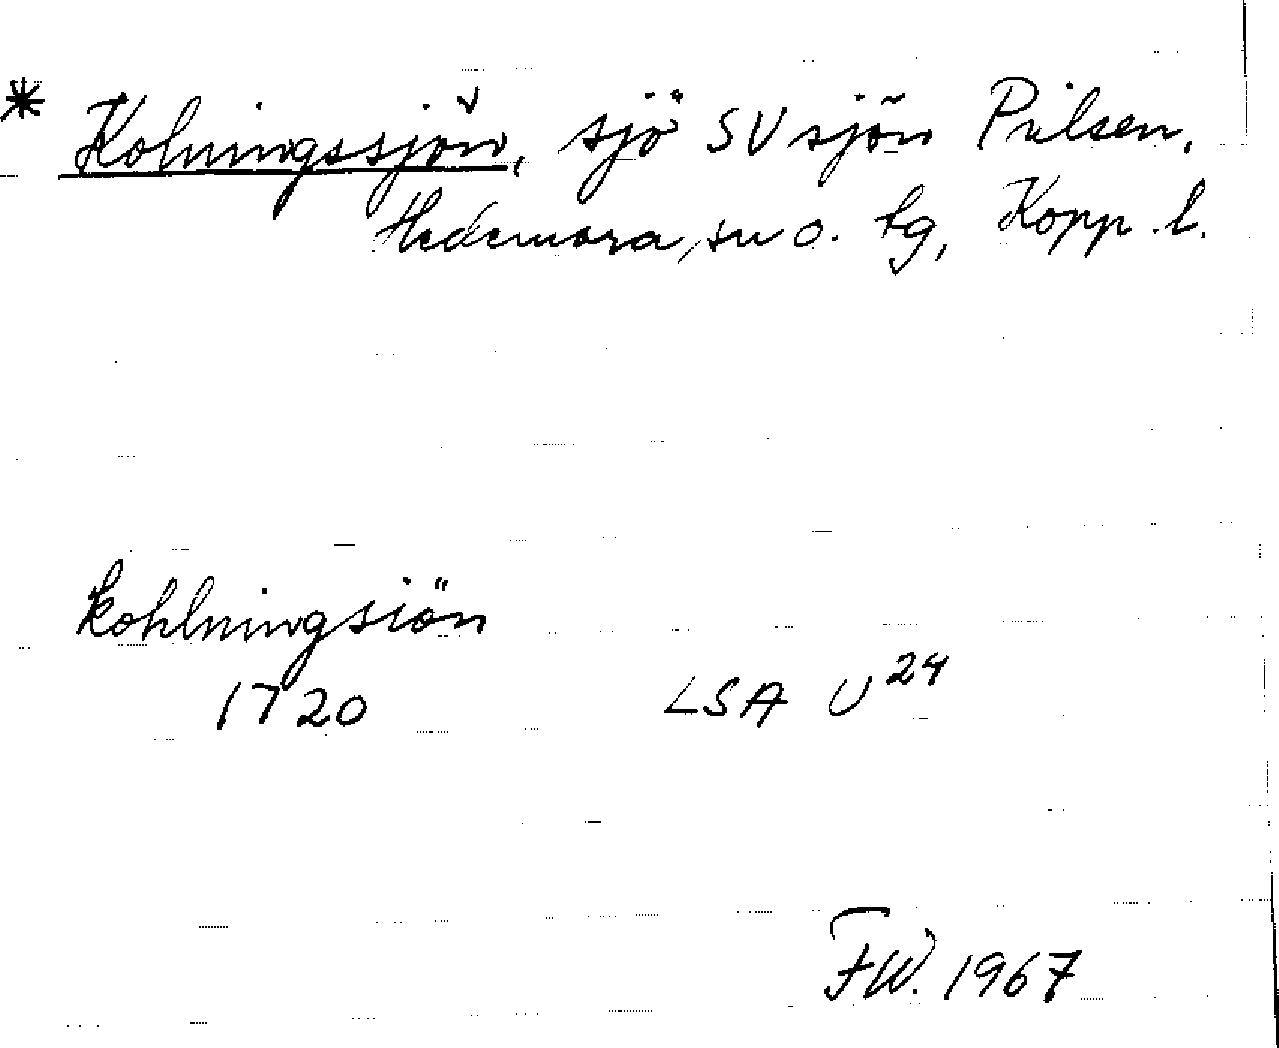 * Kolningssjön, sjö SV sjön Pilsen,
Hedemora, sn o. tg, Kopp. l.
kohlningsiön
1720 LSA U24
FW. 1967